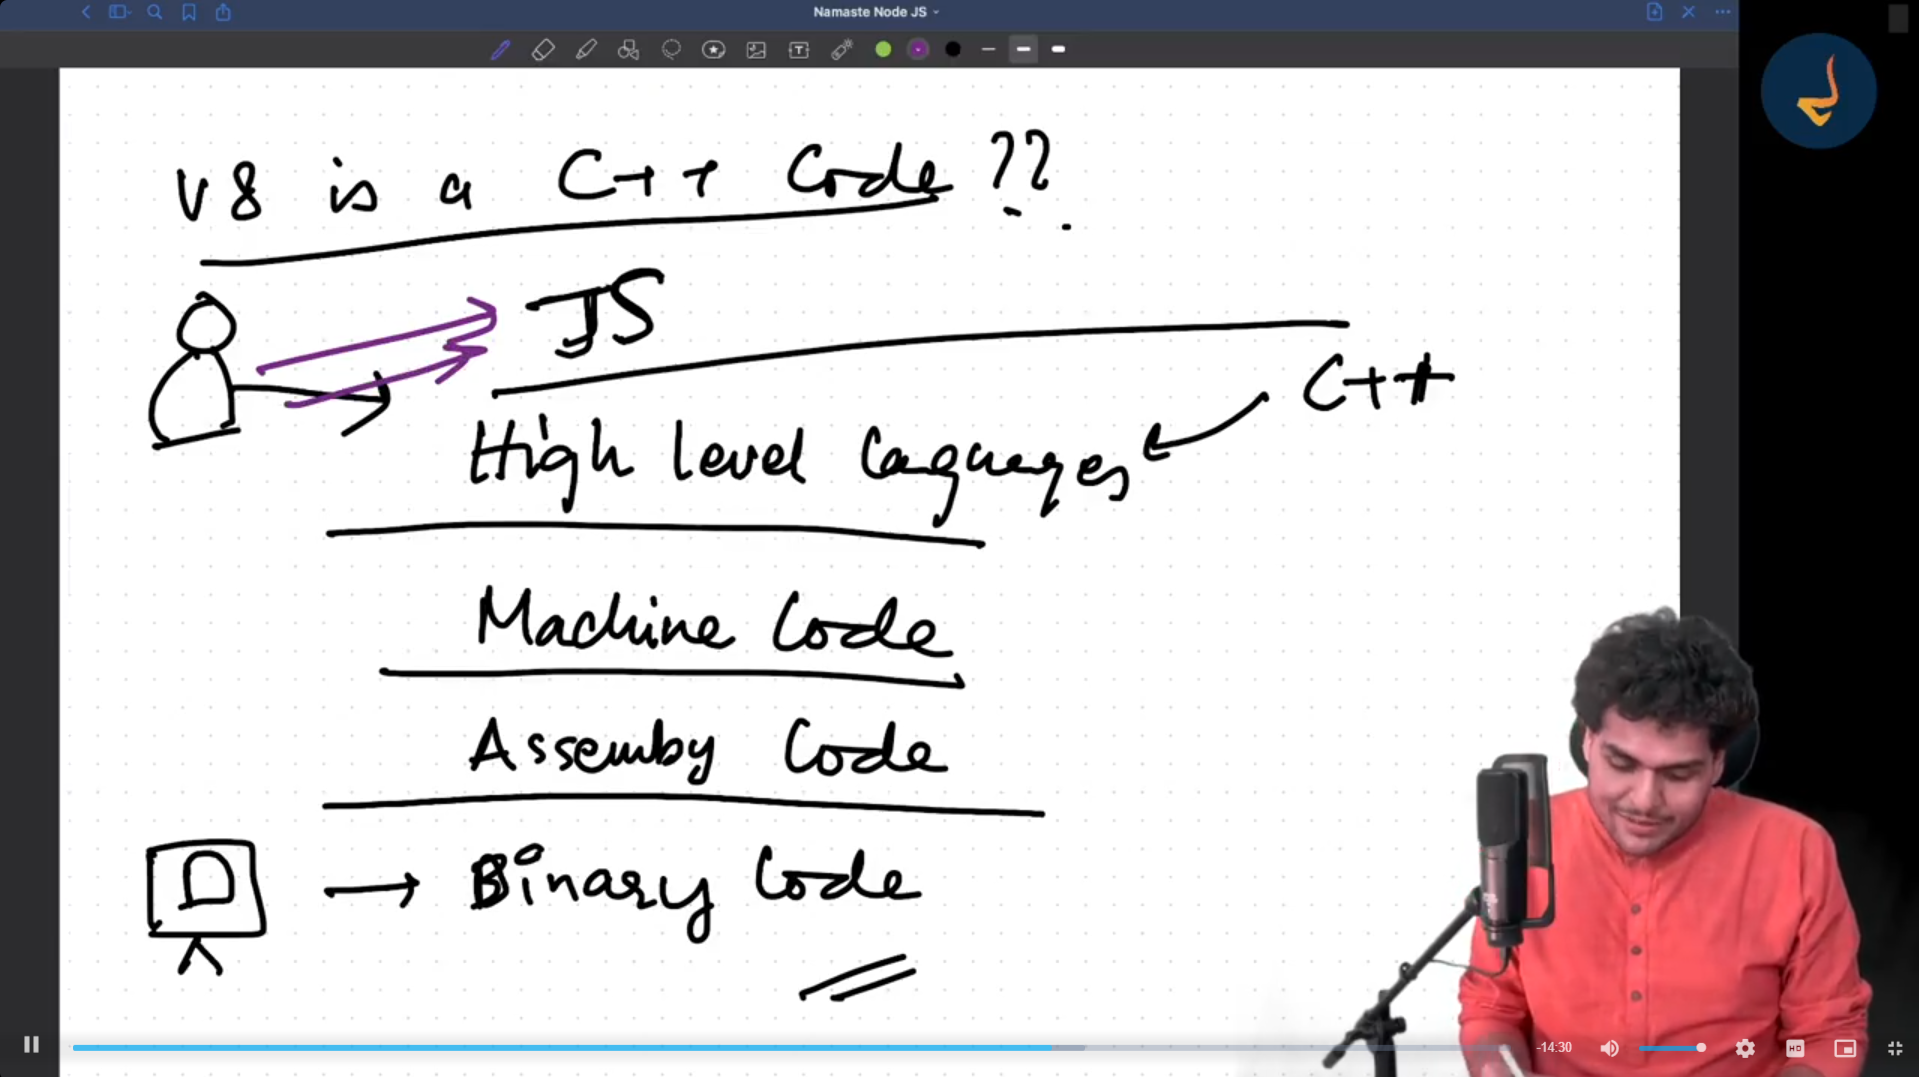 Namaste Node JS
V8 is a C++ Code ??
JS
C++
High level Laguages
Machine Code
Assemby Code
Binary Code
-14:30
HD